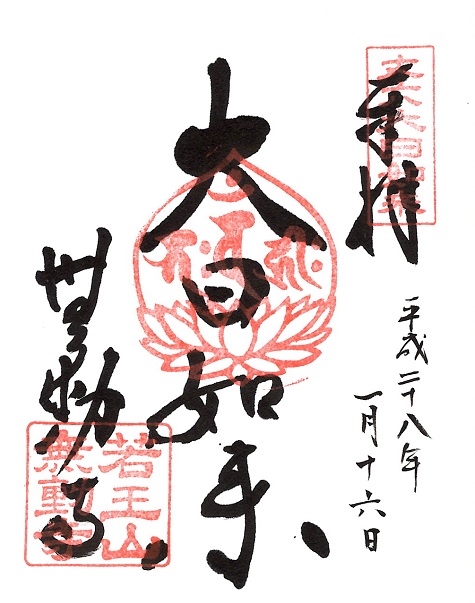 奉拝
平成二十八年
一月十六日
大日如来
無動寺
若王山
無動寺